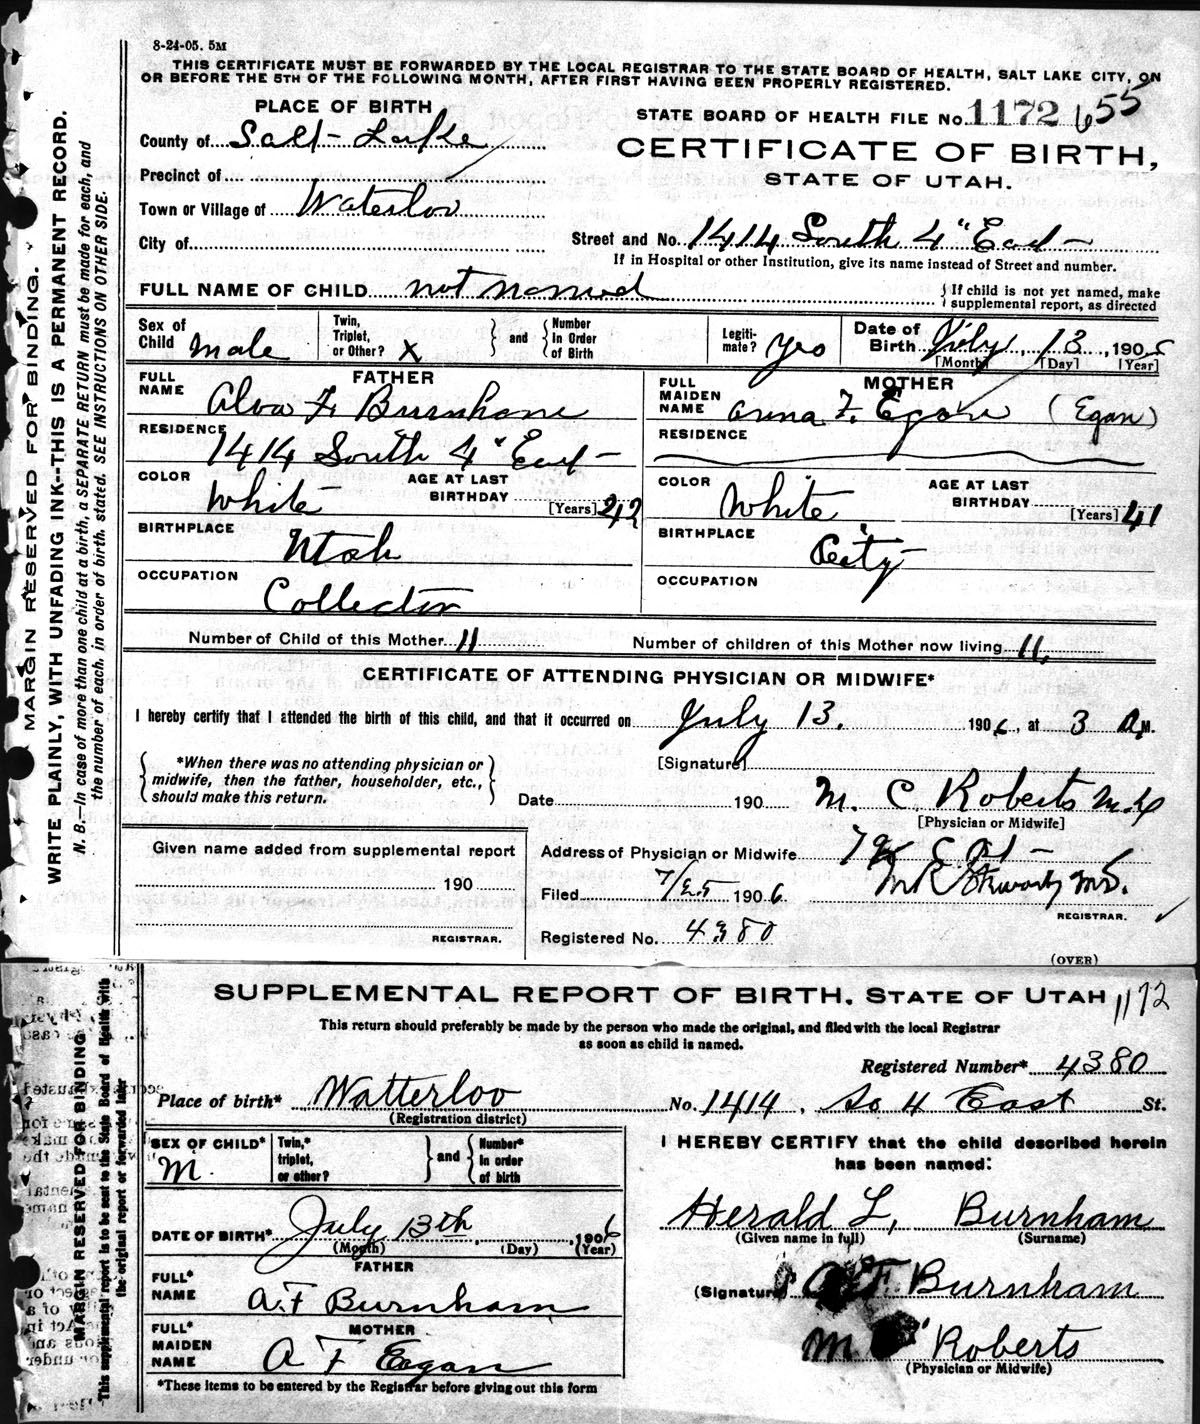 8-24-05. 5M
THIS CERTIFICATE MUST BE FORWARDED BY THE LOCAL REGISTRAR TO THE STATE BOARD OF HEALTH, SALT LAKE CITY, ON
OR BEFORE THE 5TH OF THE FOLLOWING MONTH, AFTER FIRST HAVING BEEN PROPERLY REGISTERED.
MARGIN RESERVED FOR BINDING.
WRITE PLAINLY, WITH UNFADING INK--THIS IS A PERMANENT RECORD.
N. B.—In case of more than one child at a birth, a SEPARATE RETURN must be made for each, and
the number of each, in order of birth, stated. SEE INSTRUCTIONS ON OTHER SIDE.
PLACE OF BIRTH
County of Salt Lake
Precinct of
Town or Village of Waterloo
City of
STATE BOARD OF HEALTH FILE No. 1172 655
CERTIFICATE OF BIRTH,
STATE OF UTAH.
Street and No. 1414 South 4" East
If in Hospital or other Institution, give its name instead of Street and number.
FULL NAME OF CHILD not named
If child is not yet named, make
supplemental report, as directed
Sex of Child Male
Twin, Triplet, or Other? X
and
Number In Order of Birth
Legitimate? Yes
Date of Birth July 13, 190
[Month] [Day] [Year]
FATHER
FULL NAME Alva F. Burnham
RESIDENCE 1414 South 4" East
COLOR White
AGE AT LAST BIRTHDAY [Years] 42
BIRTHPLACE Utah
OCCUPATION Collector
MOTHER
FULL MAIDEN NAME Anna F. Egan (Egan)
RESIDENCE
COLOR White
AGE AT LAST BIRTHDAY [Years] 41
BIRTHPLACE City
OCCUPATION
Number of Child of this Mother 11
Number of children of this Mother now living 11.
CERTIFICATE OF ATTENDING PHYSICIAN OR MIDWIFE*
I hereby certify that I attended the birth of this child, and that it occurred on July 13. 1906, at 3 A.M.
*When there was no attending physician or
midwife, then the father, householder, etc.,
should make this return.
[Signature]
Date 190 M. C. Roberts M.D.
[Physician or Midwife]
Given name added from supplemental report
190
REGISTRAR.
Address of Physician or Midwife
Filed 7/25 1906
REGISTRAR.
Registered No. 4380
(OVER)
SUPPLEMENTAL REPORT OF BIRTH, STATE OF UTAH 1172
This return should preferably be made by the person who made the original, and filed with the local Registrar
as soon as child is named.
MARGIN RESERVED FOR BINDING
This supplemental report is to be sent to the State Board of Health with
the original report or forwarded later
Registered Number* 4380
Place of birth* Watterloo No. 1414. So 4 East St.
(Registration district)
SEX OF CHILD* M.
Twin,* triplet, or other?
and
Number* in order of birth
DATE OF BIRTH* July 13th, 1906
(Month) (Day) (Year)
FATHER
FULL* NAME A. F Burnham
MOTHER
FULL* MAIDEN NAME A F Eagan
*These items to be entered by the Registrar before giving out this form
I HEREBY CERTIFY that the child described herein
has been named:
Herald L, Burnham
(Given name in full) (Surname)
(Signature) A. F. Burnham
M C Roberts
(Physician or Midwife)